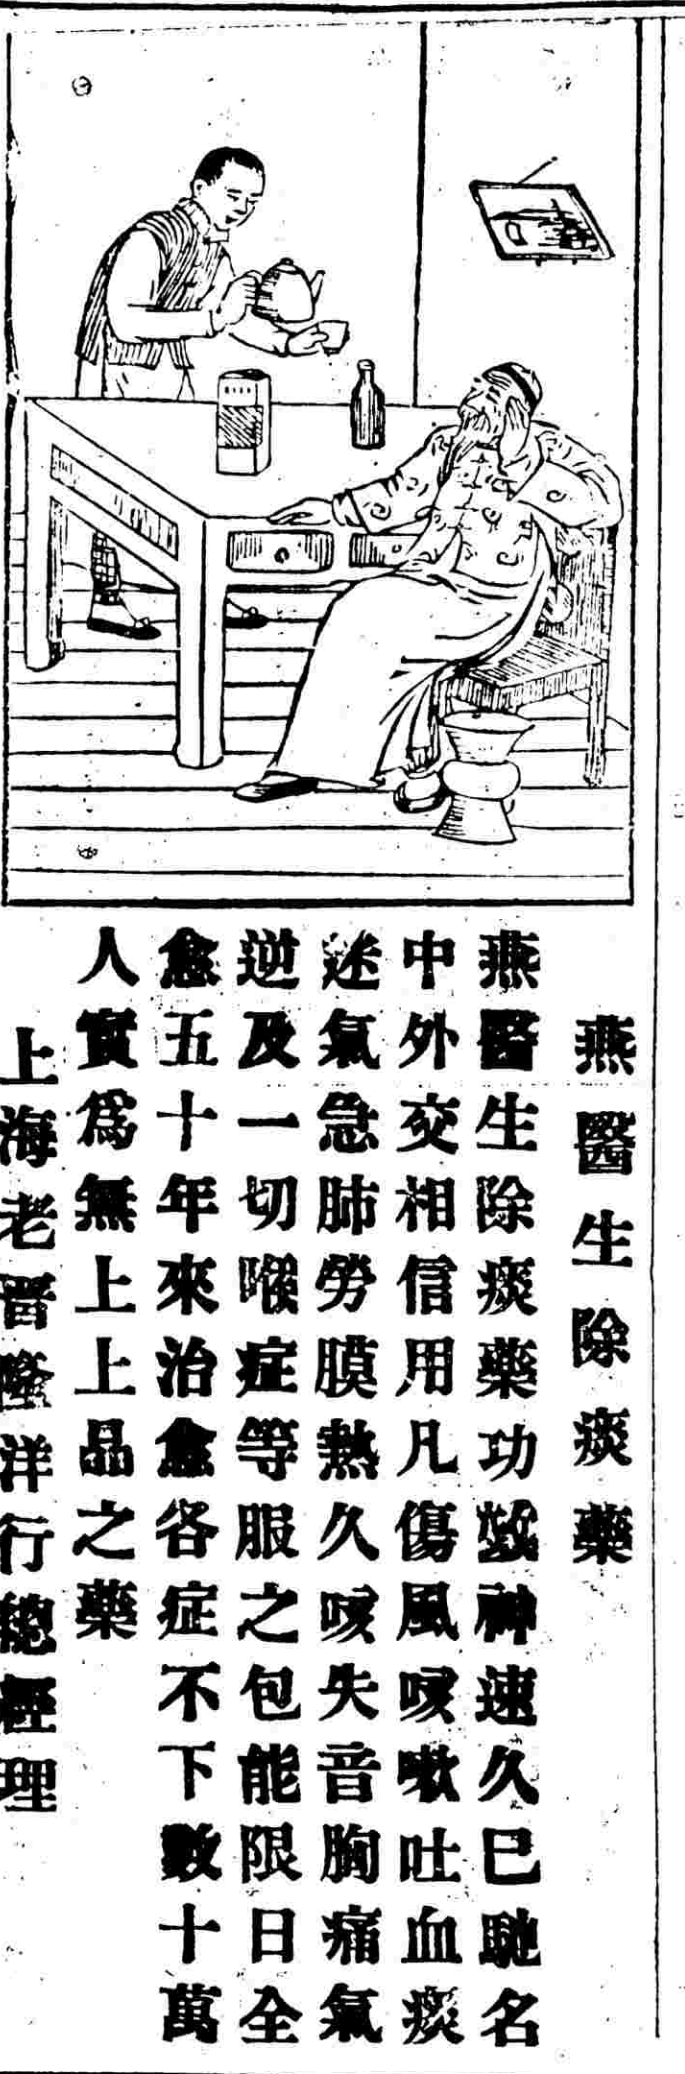 燕醫生除痰藥
燕醫生除痰藥功效神速久已馳名
中外交相信用凡傷風咳嗽吐血痰
迷氣急肺勞膜熱久咳失音胸痛氣
逆及一切喉症等服之包能限日全
愈五十年來治愈各症不下數十萬
人實爲無上上品之藥
上海老晋隆洋行總經理